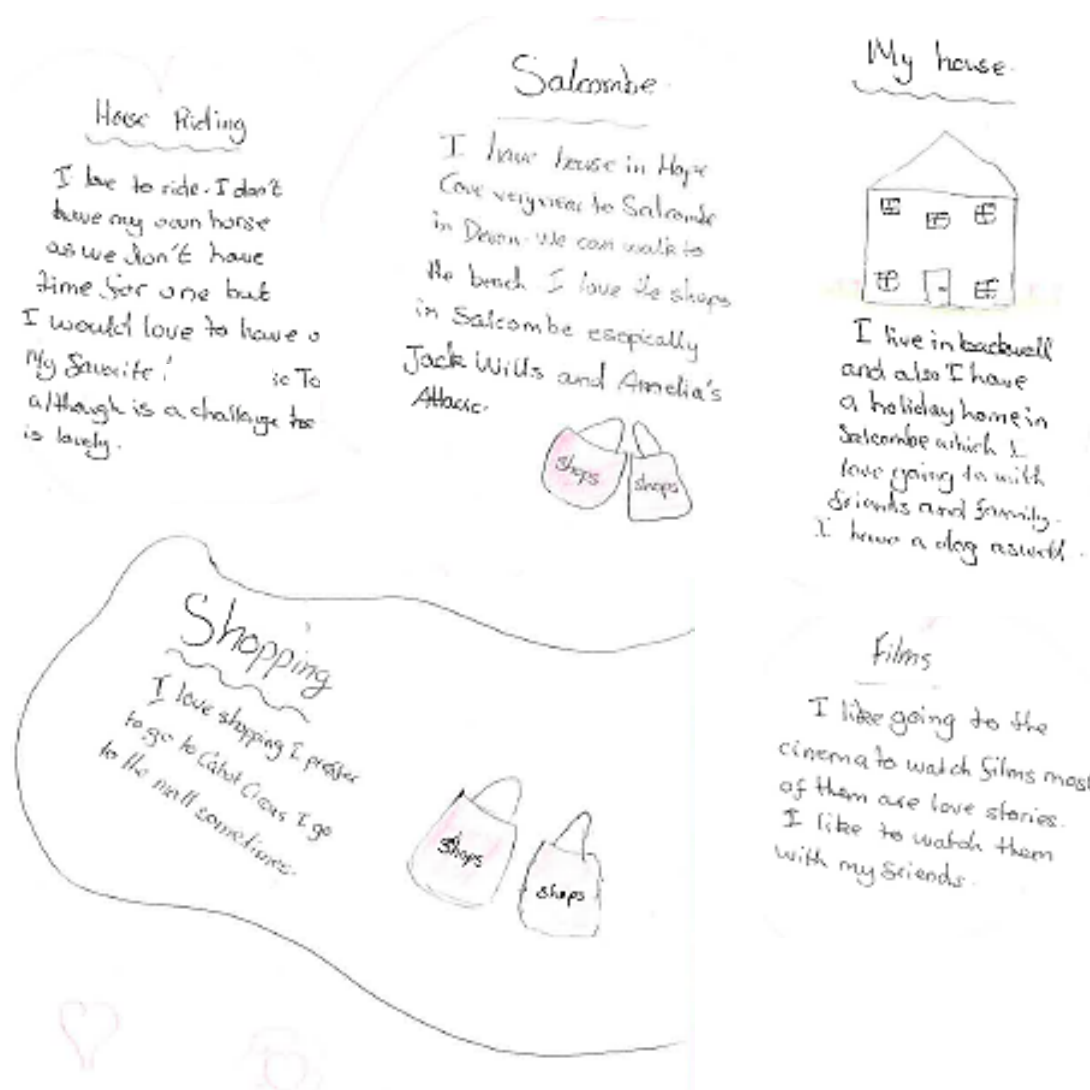 Horse Riding
I love to ride. I don't
have my own horse
as we don't have
time for one but
I would love to have a
My favorite! is To
although is a challenge too
is lovely.
Salcombe.
I have house in Hope
Cove very near to Salcombe
in Devon. We can walk to
the beach. I love the shops
in Salcombe esopically
Jack Wills and Amelia's
Attacic.
shops
shops
My house.
I live in backwell
and also I have
a holiday home in
Salcombe which I
love going to with
friends and family.
I have a dog aswell.
Shopping
I love shopping I prefer
to go to Cabot Circus I go
to the mall sometimes.
shops
shops
films
I like going to the
cinema to watch films most
of them are love stories.
I like to watch them
with my friends.